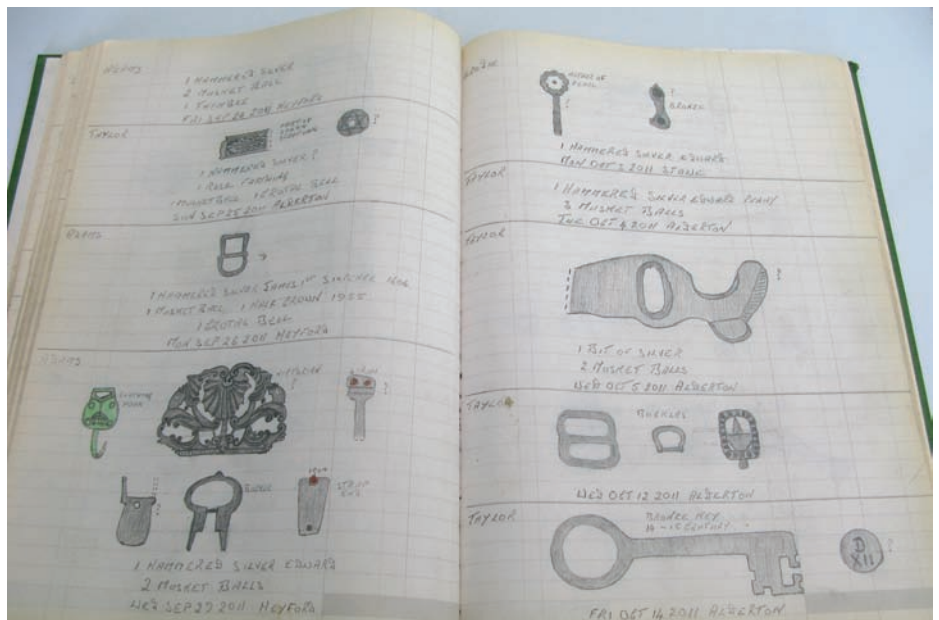 ADAMS
1 HAMMERED SILVER
2 MUSKET BALL
1 THIMBLE
FRI SEP 2011 HEYFORD
TAYLOR
PART OF
?
1 HAMMERED SILVER ?
1 MUSKET BALL 1 CROTAL BELL
SUN SEP 25 2011 ALDERTON
ADAMS
?
1 HAMMERED SILVER JAMES 1ST
1 MUSKET BALL 1 HALF CROWN 1955
1 CROTAL BELL
MON SEP 26 2011 HEYFORD
ADAMS
?
?
?
BUCKLE
STRAP
END
1 HAMMERED SILVER EDWARD
2 MUSKET BALLS
WED SEP 27 2011 HEYFORD
?
?
BRONZE
1 HAMMERED SILVER EDWARD
MON OCT 3 2011 STOKE
TAYLOR
1 HAMMERED SILVER EDWARD PENNY
3 MUSKET BALLS
TUE OCT 4 2011 ALDERTON
TAYLOR
?
1 BIT OF SILVER
2 MUSKET BALLS
WED OCT 5 2011 ALDERTON
TAYLOR
BUCKLES
WED OCT 12 2011 ALDERTON
TAYLOR
BRONZE KEY
14 - 15 CENTURY
D
XII
?
FRI OCT 14 2011 ALDERTON